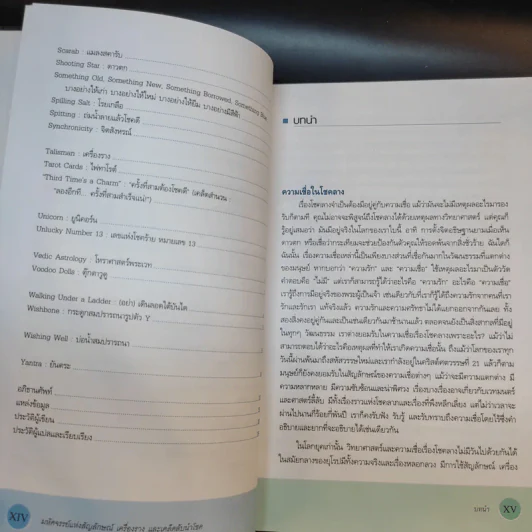 Scarab : แมลงสคารับ
Shooting Star : ดาวตก
Something Old, Something New, Something Borrowed, Something Blue
บางอย่างให้เก่า บางอย่างให้ใหม่ บางอย่างให้ยืม บางอย่างมีสีฟ้า
Spilling Salt : โรยเกลือ
Spitting : ถ่มน้ำลายแล้วโชคดี
Synchronicity : จิตสังหรณ์
Talisman : เครื่องราง
Tarot Cards : ไพ่ทาโรต์
"Third Time's a Charm" : "ครั้งที่สามต้องโชคดี" (เคล็ดสำนวน :
"ลองอีกที... ครั้งที่สามสำเร็จแน่")
Unicorn : ยูนิคอร์น
Unlucky Number 13 : เลขแห่งโชคร้าย หมายเลข 13
Vedic Astrology : โหราศาสตร์พระเวท
Voodoo Dolls : ตุ๊กตาวูดู
Walking Under a Ladder : (อย่า) เดินลอดใต้บันได
Wishbone : กระดูกสมปรารถนารูปตัว Y
Wishing Well : บ่อน้ำสมปรารถนา
Yantra : ยันตระ
อภิธานศัพท์
แหล่งข้อมูล
ประวัติผู้เขียน
ประวัติผู้แปลและเรียบเรียง
XIV มหัศจรรย์แห่งสัญลักษณ์ เครื่องราง และเคล็ดลับนำโชค
บทนำ
ความเชื่อในโชคลาง
เรื่องโชคลางจำเป็นต้องมีอยู่คู่กับความเชื่อ แม้ว่ามันจะไม่มีเหตุผลอะไรมารอง
รับก็ตามที คุณไม่อาจจะพิสูจน์ถึงโชคลางได้ด้วยเหตุผลทางวิทยาศาสตร์ แต่คุณก็
รู้อยู่เสมอว่า มันมีอยู่จริงในโลกของเราใบนี้ อาทิ การตั้งจิตอธิษฐานยามเมื่อเห็น
ดาวตก หรือเชื่อว่ากระเทียมจะช่วยป้องกันตัวคุณให้รอดพ้นจากสิ่งชั่วร้าย ฉันใดก็
ฉันนั้น เรื่องความเชื่อเหล่านี้เป็นเพียงบางส่วนที่เชื่อกันมาในวัฒนธรรมที่แตกต่าง
ของมนุษย์ หากบอกว่า "ความรัก" และ "ความเชื่อ" ใช้เหตุผลอะไรมาเป็นตัววัด
คำตอบคือ "ไม่มี" แต่เราก็สามารถรู้ได้ว่าอะไรคือ "ความรัก" อะไรคือ "ความเชื่อ"
เรารู้ถึงการมีอยู่จริงของพระผู้เป็นเจ้า เช่นเดียวกับที่เราก็รู้ได้ถึงความรักจากคนที่เรา
รักและรักเรา แท้จริงแล้ว ความรักและความศรัทธาไม่ได้แยกออกจากกันเลย ทั้ง
สองสิ่งคงอยู่คู่กันและเป็นเช่นเดียวกันมาช้านานแล้ว ตลอดจนยังเป็นสิ่งสากลที่มีอยู่
ในทุกๆ วัฒนธรรม เราต่างยอมรับในความเชื่อเรื่องโชคลางเพราะอะไร? แม้ว่าไม่
สามารถตอบได้ว่าอะไรคือเหตุผลที่ทำให้เราเกิดความเชื่อนั้น ถึงแม้ว่าโลกของเราทุก
วันนี้ผ่านพ้นมาถึงสหัสวรรษใหม่และเรากำลังอยู่ในคริสต์ศตวรรษที่ 21 แล้วก็ตาม
มนุษย์ก็ยังคงยอมรับในสัญลักษณ์ของความเชื่อต่างๆ แม้ว่าจะมีความแตกต่าง มี
ความหลากหลาย มีความซับซ้อนและน่าพิศวง เรื่องบางเรื่องอาจเกี่ยวกับเวทมนตร์
และศาสตร์ลี้ลับ มีทั้งเรื่องราวแห่งโชคลาภและเรื่องที่พึงหลีกเลี่ยง แต่ไม่ว่าเวลาจะ
ผ่านไปนานกี่ร้อยกี่พันปี เราก็คงรับฟัง รับรู้ และรับทราบถึงความเชื่อโดยไร้ซึ่งคำ
อธิบายและยากที่จะอธิบายได้เช่นเดียวกัน
ในโลกยุคเก่านั้น วิทยาศาสตร์และความเชื่อเรื่องโชคลางไม่มีวันไปด้วยกันได้
ในสมัยกลางของยุโรปมีทั้งความจริงและเรื่องหลอกลวง มีการใช้สัญลักษณ์ เครื่อง
บทนำ XV